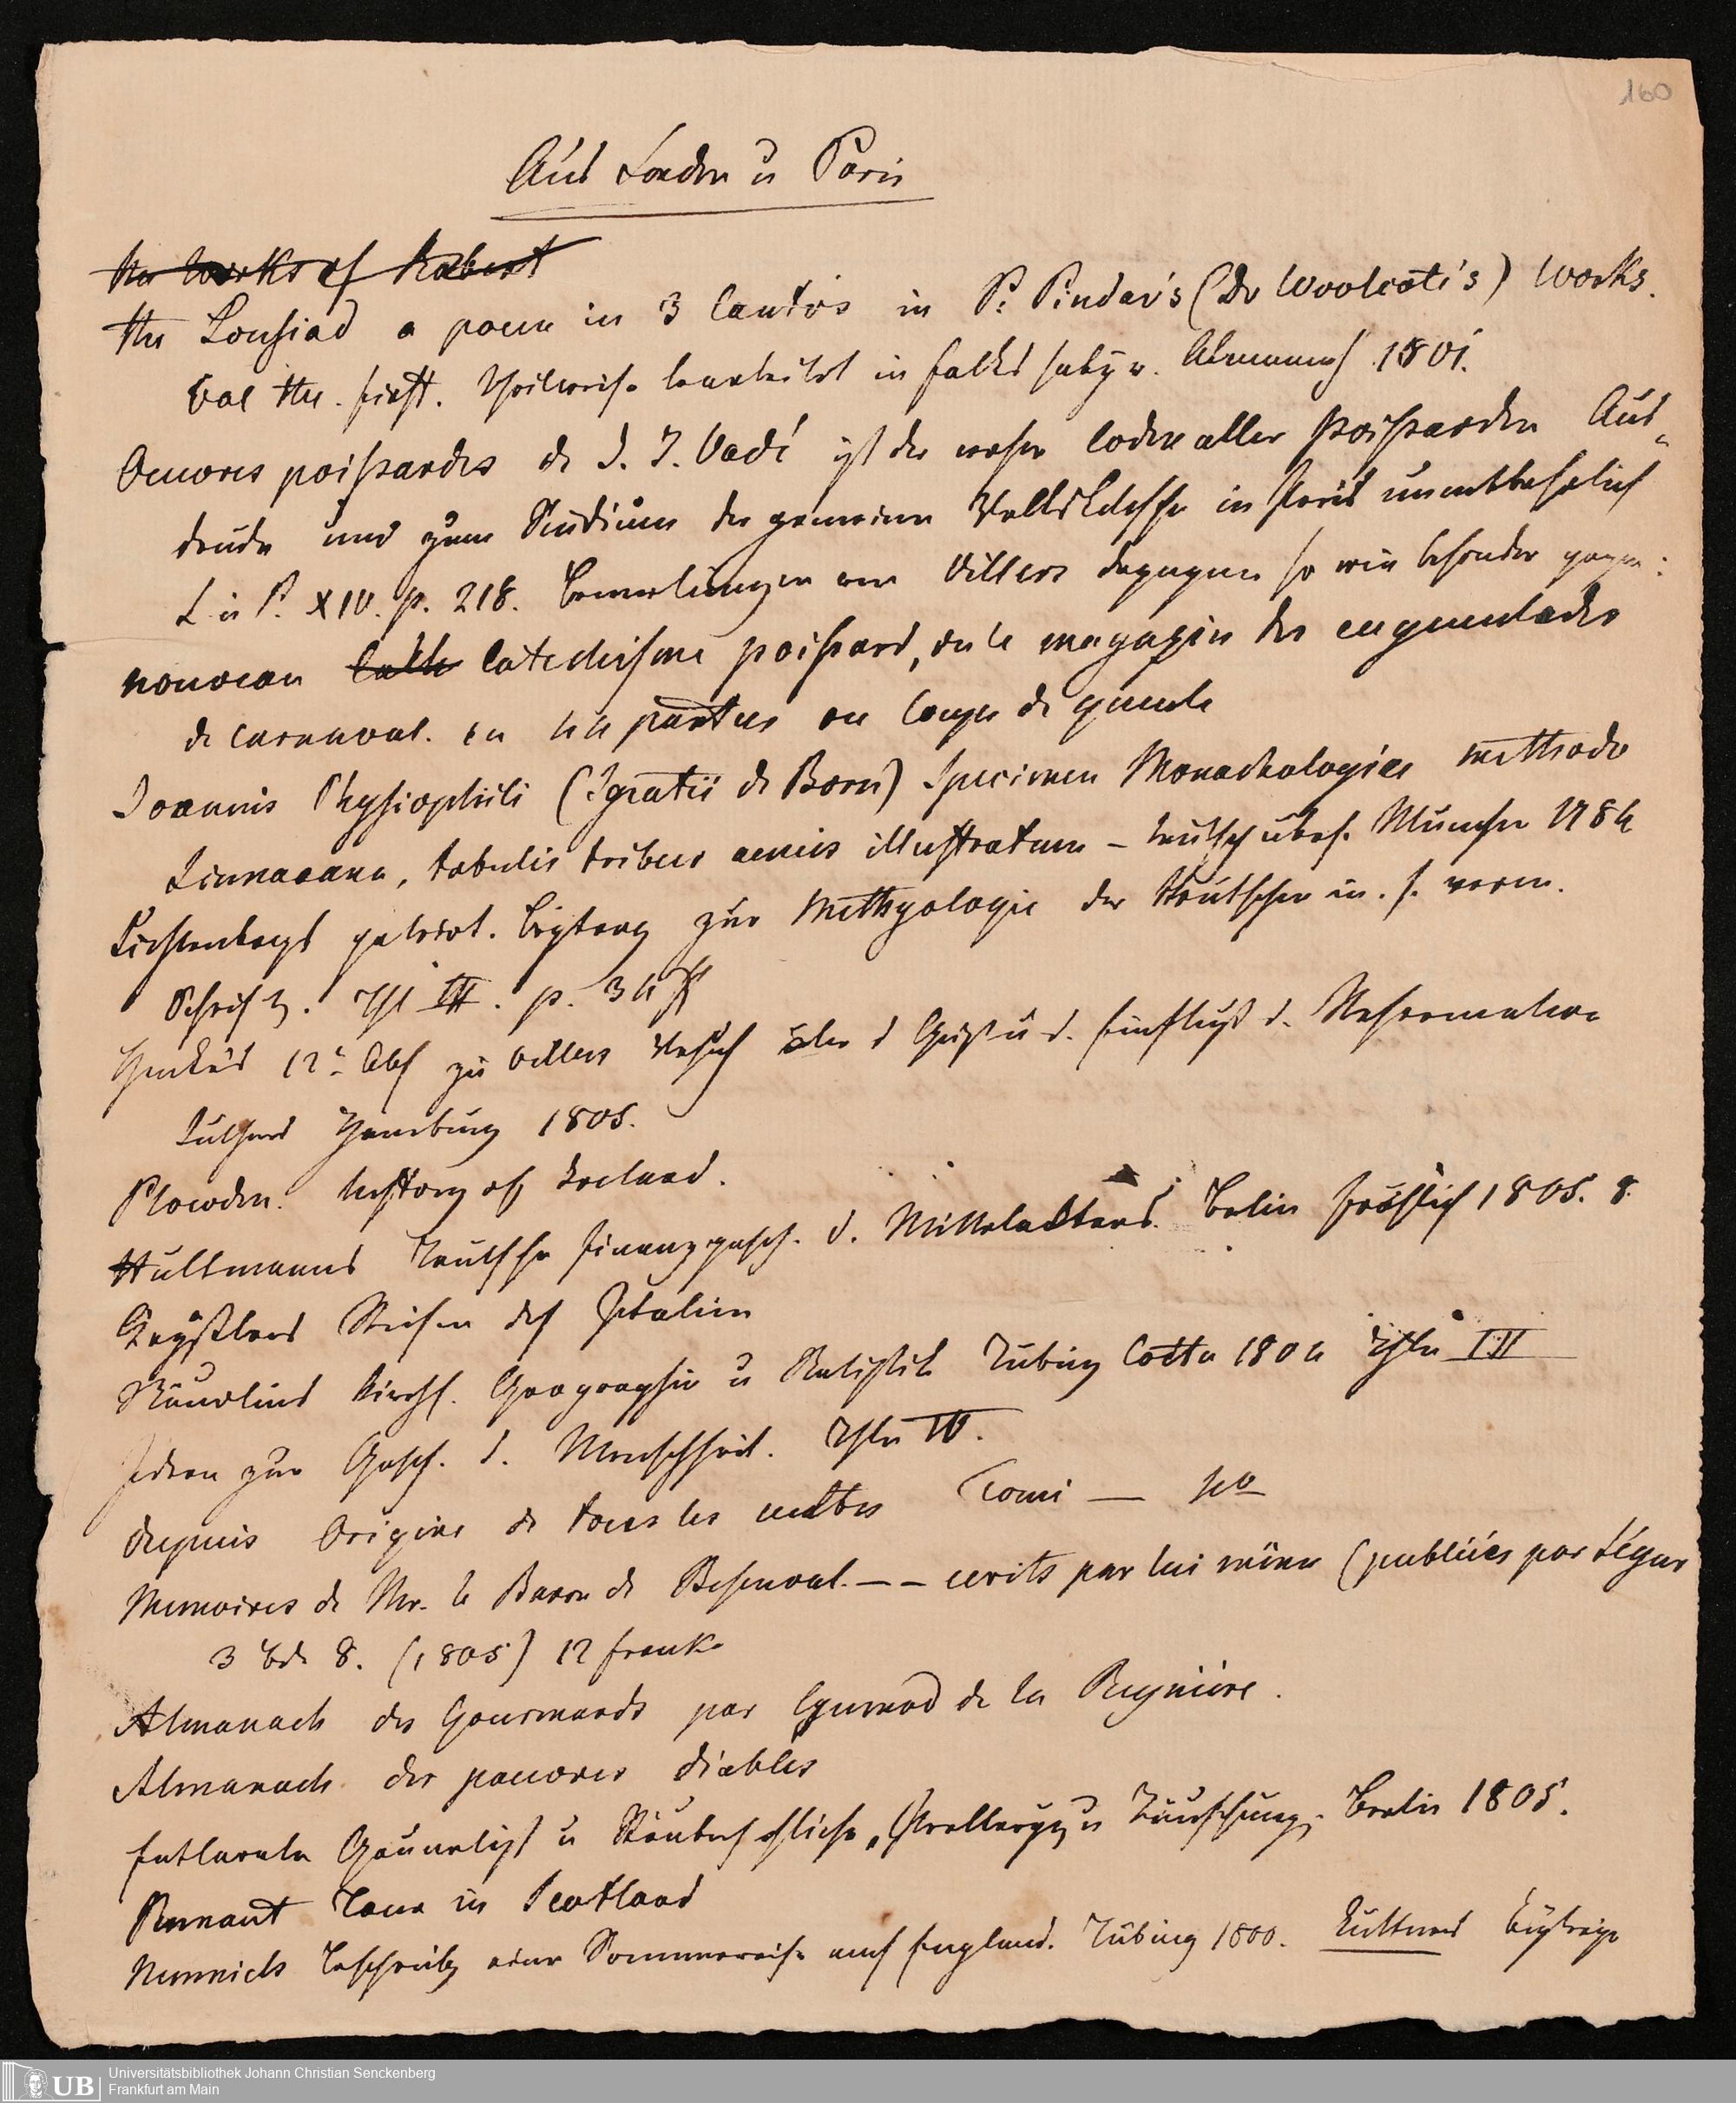 160
Aus London u Paris
the Works of Robert
the Lousiad a poem in 3 Cantos in P. Pindar's (Dr Woolcot's) Works.
Vol the first. Theilweise bearbeitet in Falks satyr. Almanach 1801.
Oeuvres poissardes de J. J. Vadé ist der wahre Codex aller Poissarden Aus-
drücke und zum Studium der gemeinen Volksklasse in Paris unentbehrlich
L. u P. XIV. p. 218. Bemerkungen von Villers dagegen so wie besonder gegen:
nouveau Cath Catechisme poissard, ou le magazin des engueulades
de carnaval. en
Joannis Physiophili (Ignatii de Born) Specimen Monachologiae methodo
Linnaeana, tabulis tribus aeneis illustratum – teutsch übers. München 1784
Lichtenbergs patriot. Beytrag zur Methyologie der Teutschen in s. verm.
Schriftn. Thl III. p. 34
Henke's 12t Abh zu Villers Versuch über d Geist u d. Einfluß d. Reformation
Luthers Hamburg 1805.
Plowden. history of Ireland.
Hullmanns Teutsche Finanzgesch. d. Mittelalters. Berlin Fröhlich 1805. 8.
Keyßlers Reisen dch Italien
Stäudlins kirchl. Geographie u Statistik Tübing Cotta 1804 Thle III
Ideen zur Gesch. d. Menschheit. Thle IV.
dupuis Origine de tous les cultes Tomi —
Memoires de Mr. le Baron de Besenval. — — ecrits par lui même (publiées par Ségur
3 Bde 8. (1805) 12 Frank
Almanach des Gourmands par Grimod de la Reynière.
Almanach des pauvres diables
Entlarvte Gaunerlist u Räuberschliche, Prellerey u Täuschung. Berlin 1805.
Pennant Tour in Scotland
Nemnichs Beschreibg einer Sommerreise nach England. Tübing 1800. Küttners Beyträge
Universitätsbibliothek Johann Christian Senckenberg
UB
Frankfurt am Main